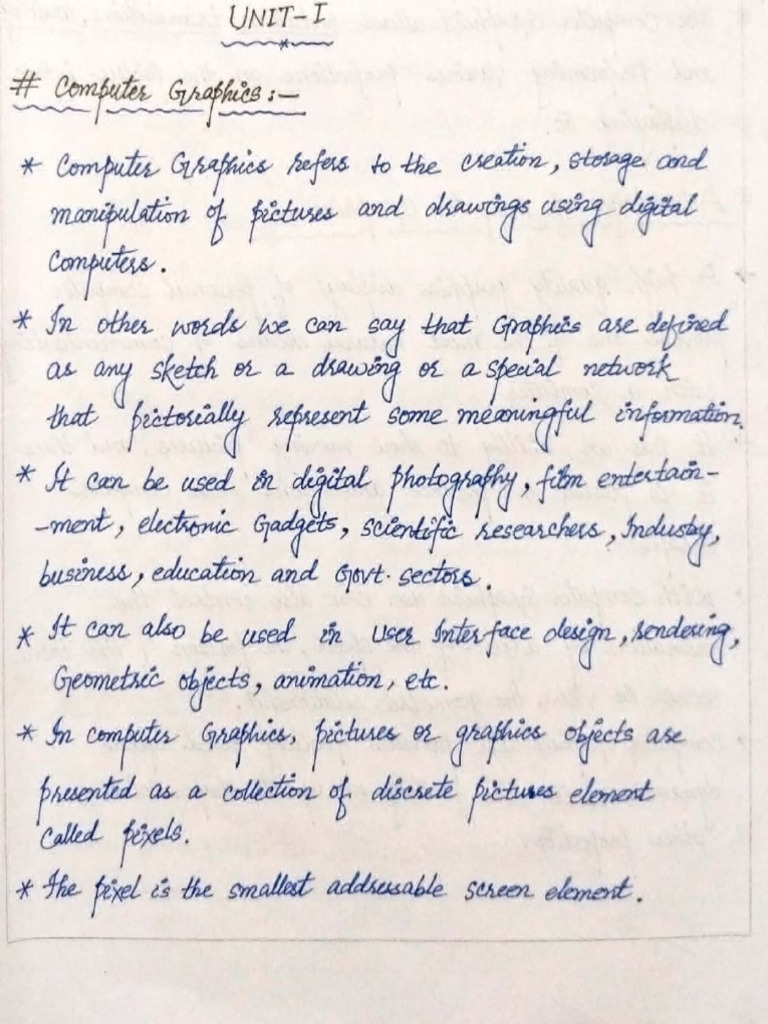 UNIT-I
# Computer Graphics:-
* Computer Graphics refers to the creation, storage and
manipulation of pictures and drawings using digital
computers.
* In other words we can say that Graphics are defined
as any sketch or a drawing or a special network
that pictorially represent some meaningful information.
* It can be used in digital photography, film entertain-
-ment, electronic Gadgets, scientific researchers, Industry,
business, education and Govt. sectors.
* It can also be used in User Interface design, rendering,
Geometric objects, animation, etc.
* In computer Graphics, pictures or graphics objects are
presented as a collection of discrete pictures element
called pixels.
* The pixel is the smallest addressable screen element.